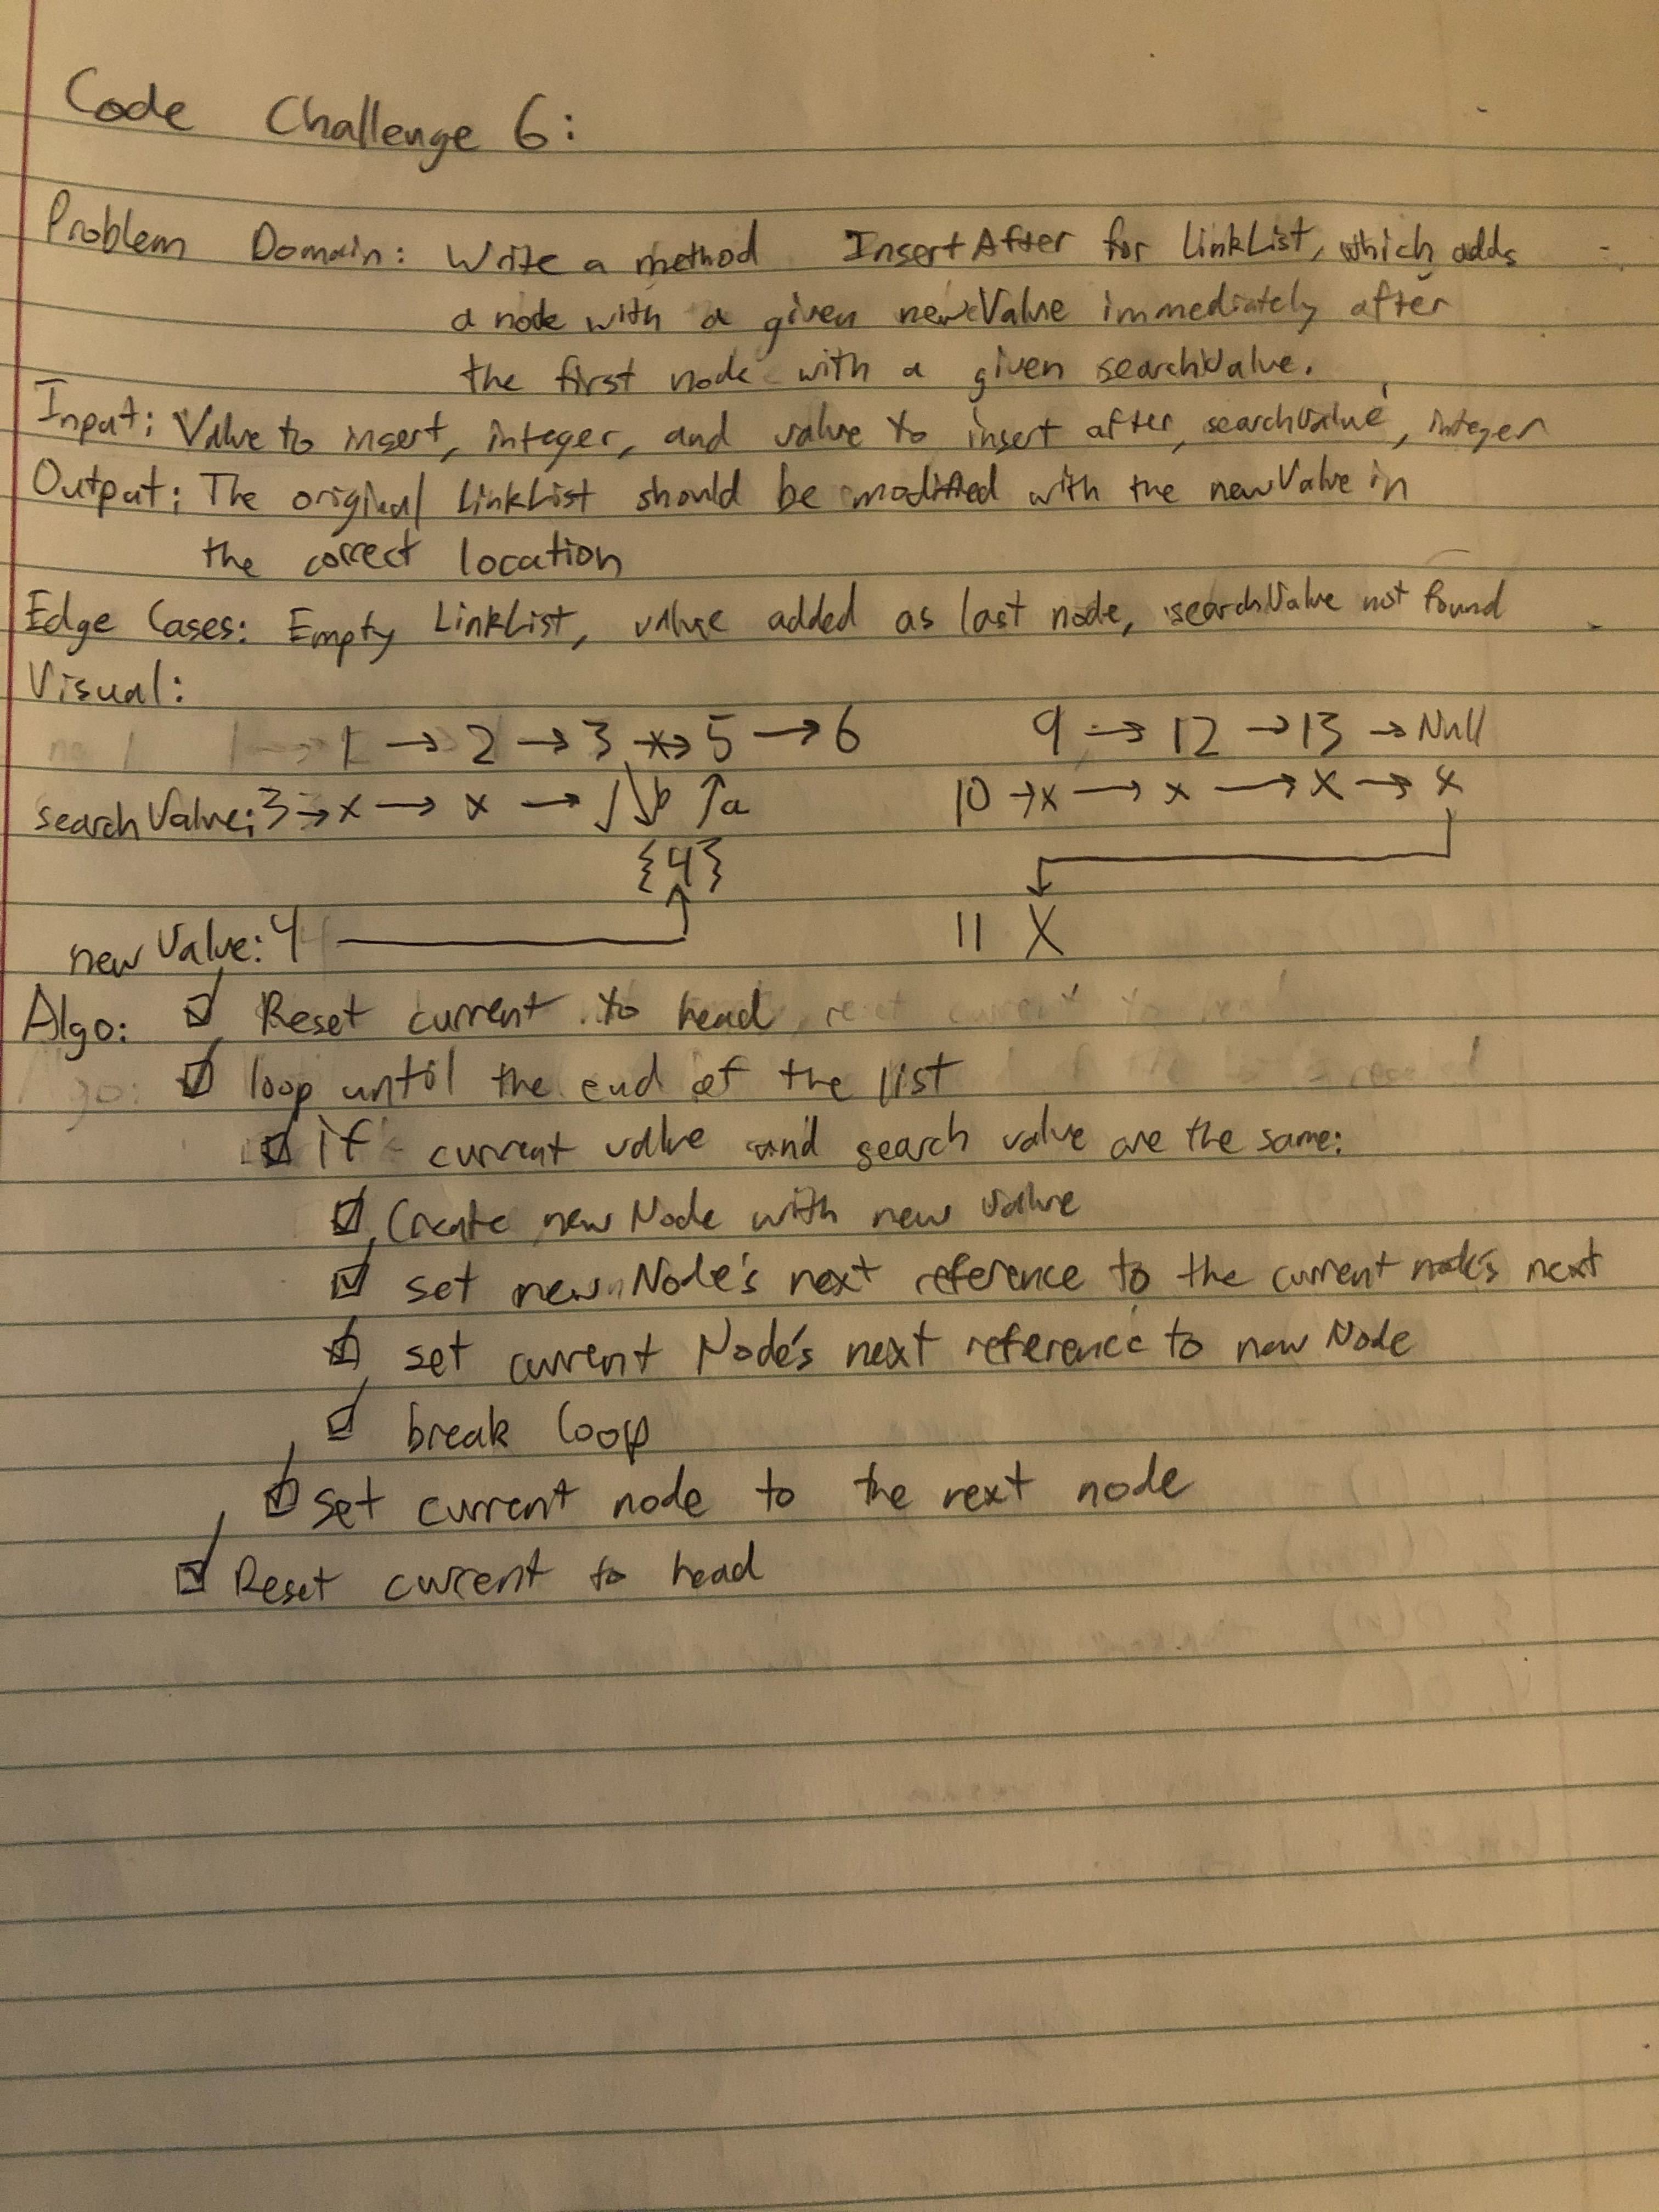 Code Challenge 6:
Problem Domain: Write a method InsertAfter for LinkList, which adds
a node with a given newValue immediately after
the first node with a given searchValue.
Input: Value to insert, integer, and value to insert after, searchValue, integer
Output: The original LinkList should be modified with the newValue in
the correct location
Edge Cases: Empty LinkList, value added as last node, searchValue not found
Visual:
1 → 2 → 3 → 5 → 6 9 → 12 → 13 → Null
searchValue: 3 → x → x → √ b ↑a 10 → x → x → x → x
{4}
newValue: 4 11 X
Algo: ☑ Reset current to head
☑ loop until the end of the list
☑ if current value and search value are the same:
☑ Create new Node with new value
☑ set new Node's next reference to the current node's next
☑ set current Node's next reference to new Node
☑ break loop
☑ set current node to the next node
☑ Reset current to head